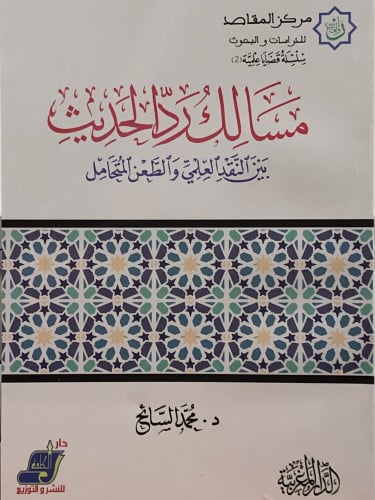 مركز المقاصد
للدراسات والبحوث
سلسلة قضايا علمية (2)
مَسَالِكُ رَدِّ الحَدِيثِ
بَيْنَ النَّقْدِ العِلْمِيِّ وَالطَّعْنِ المُتَحَامِلِ
د. محمد السائح
دار
الكلمة
للنشر والتوزيع
الدار المغربية